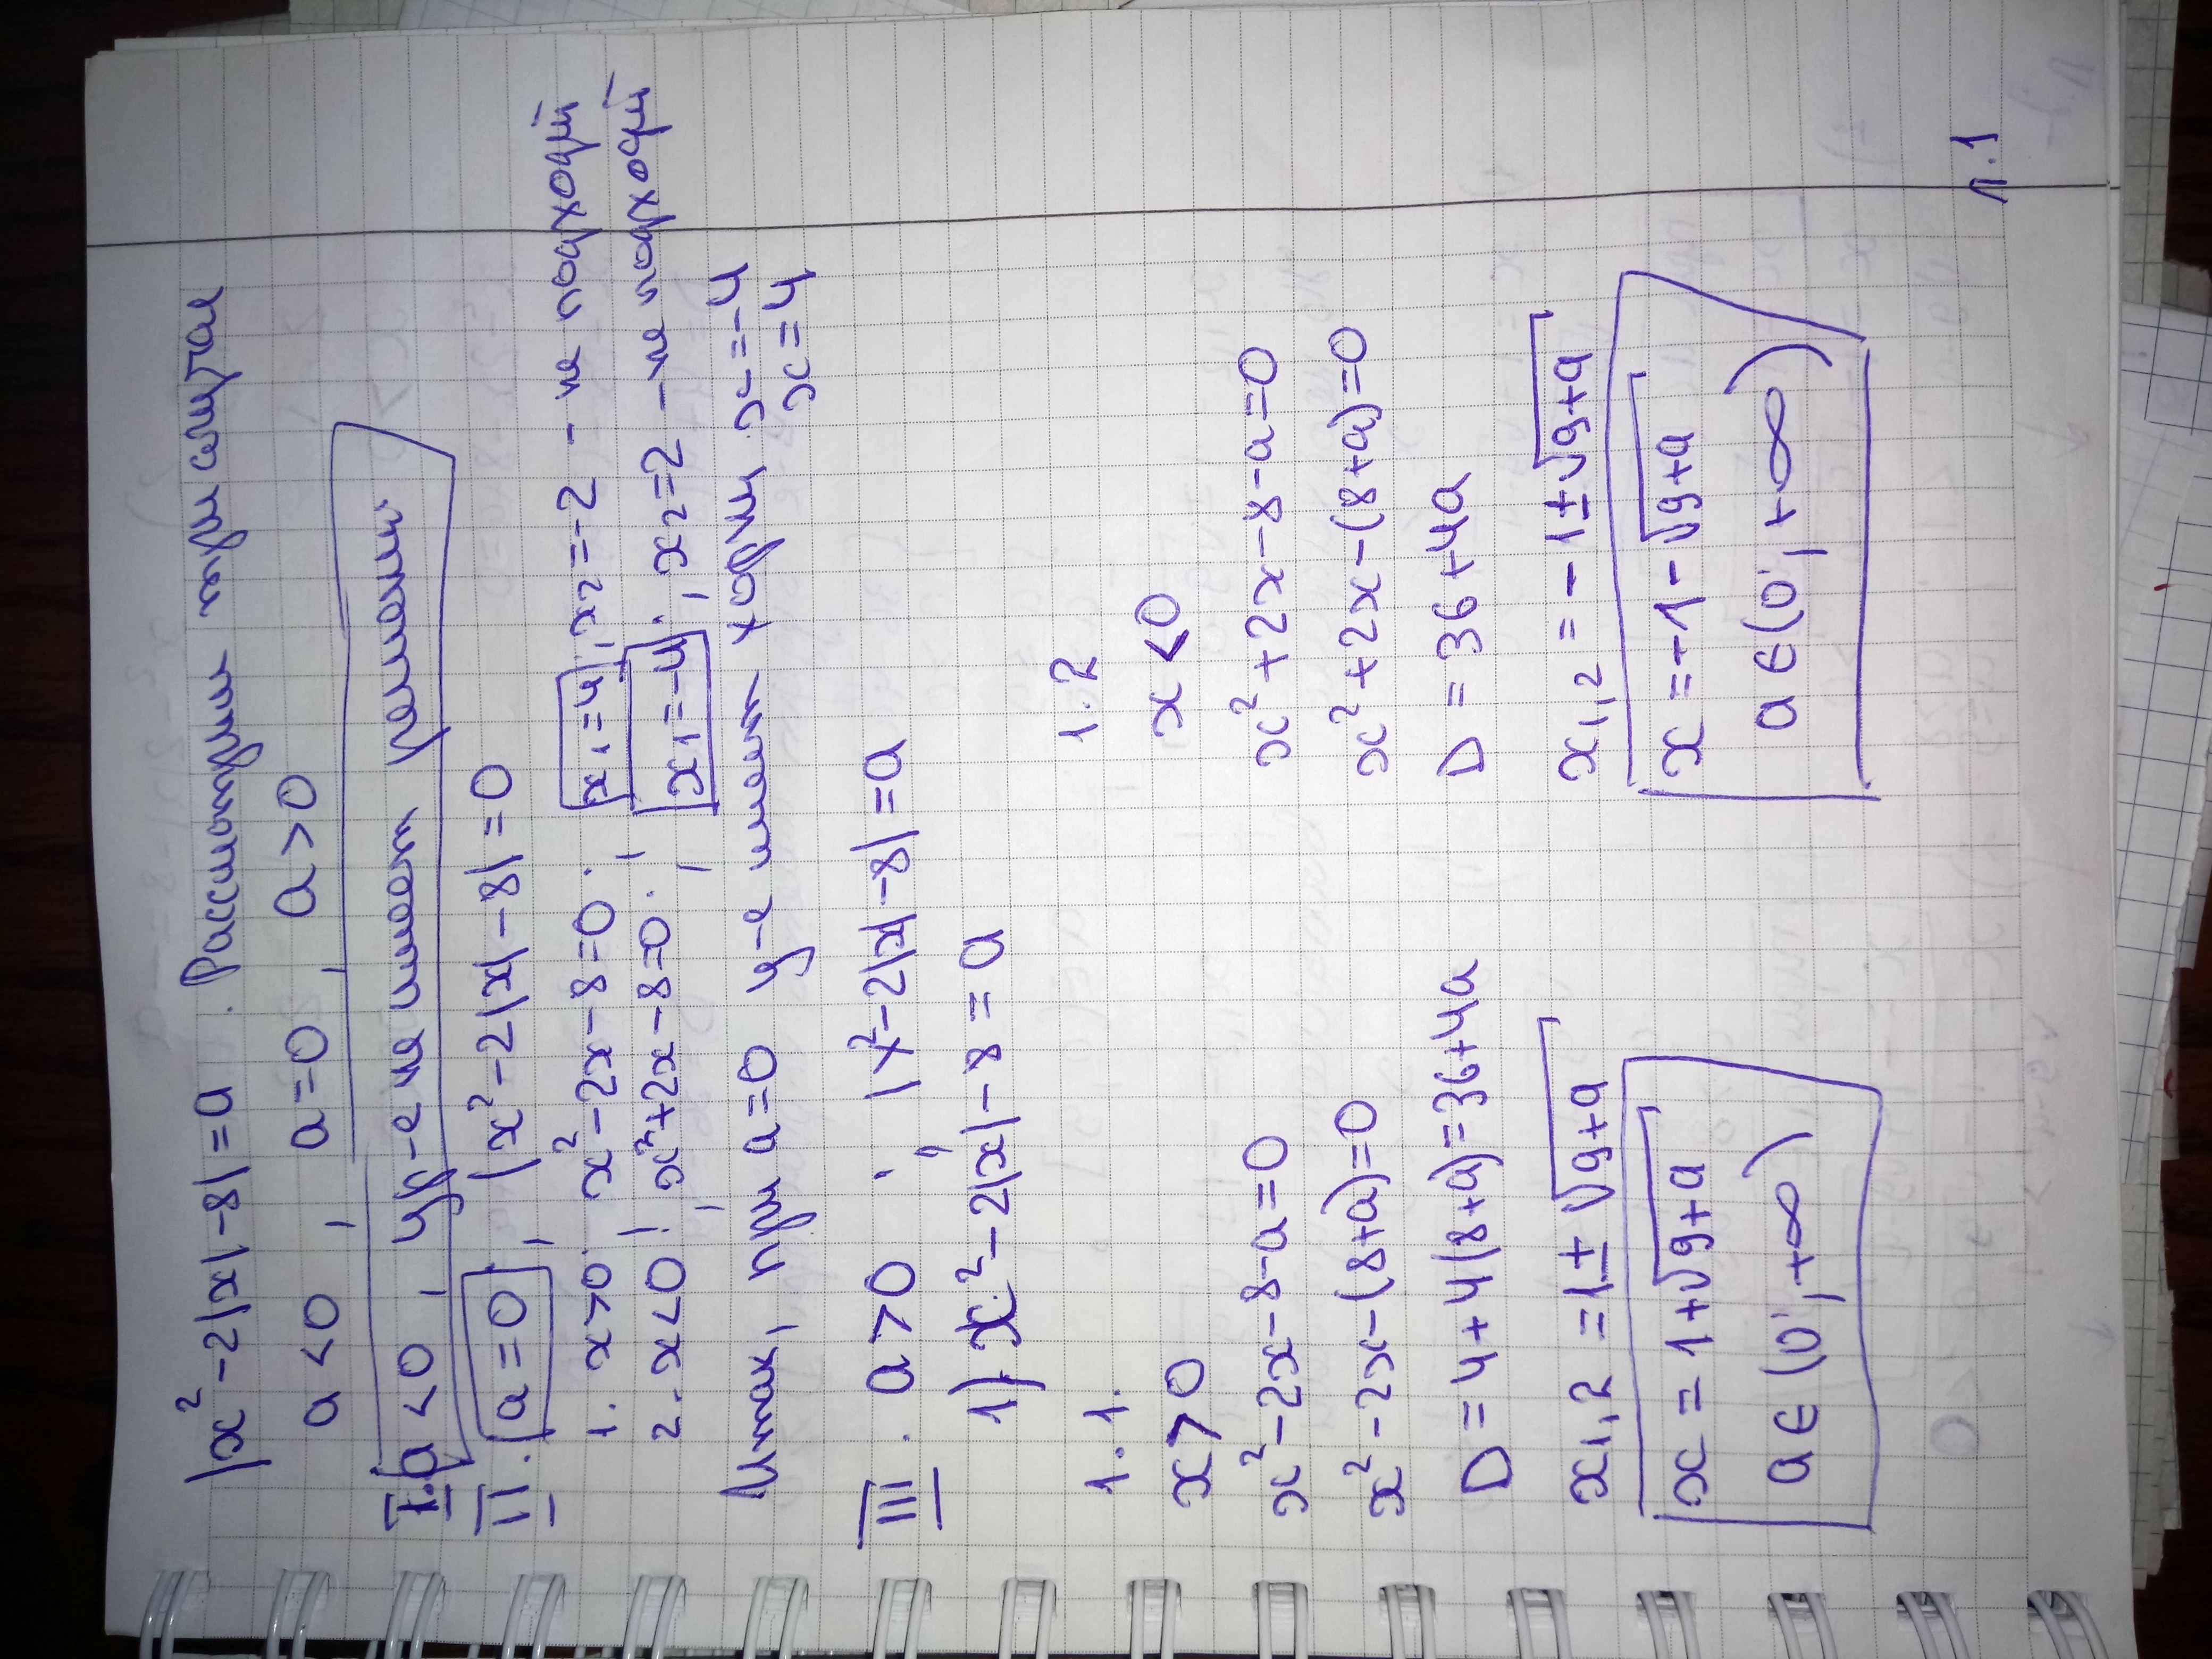 |x²-2|x|-8|=a . Рассмотрим три случая
a<0 , a=0 , a>0
I. a<0 , ур-е не имеет решений.
II. a=0 ; |x²-2|x|-8|=0
1. x>0; x²-2x-8=0; x₁=4; x₂=-2 - не подходит
2. x<0; x²+2x-8=0; x₁=-4; x₂=2 - не подходит
Итак, при a=0 у-е имеет корни x=-4
x=4
III. a>0 ; |x²-2|x|-8|=a
1) x²-2|x|-8=a
1.1. 1.2
x>0 x<0
x²-2x-8-a=0 x²+2x-8-a=0
x²-2x-(8+a)=0 x²+2x-(8+a)=0
D=4+4(8+a)=36+4a D=36+4a
x₁,₂=1±√9+a x₁,₂=-1±√9+a
x=1+√9+a x=-1-√9+a
a∈(0;+∞) a∈(0;+∞)
л.1